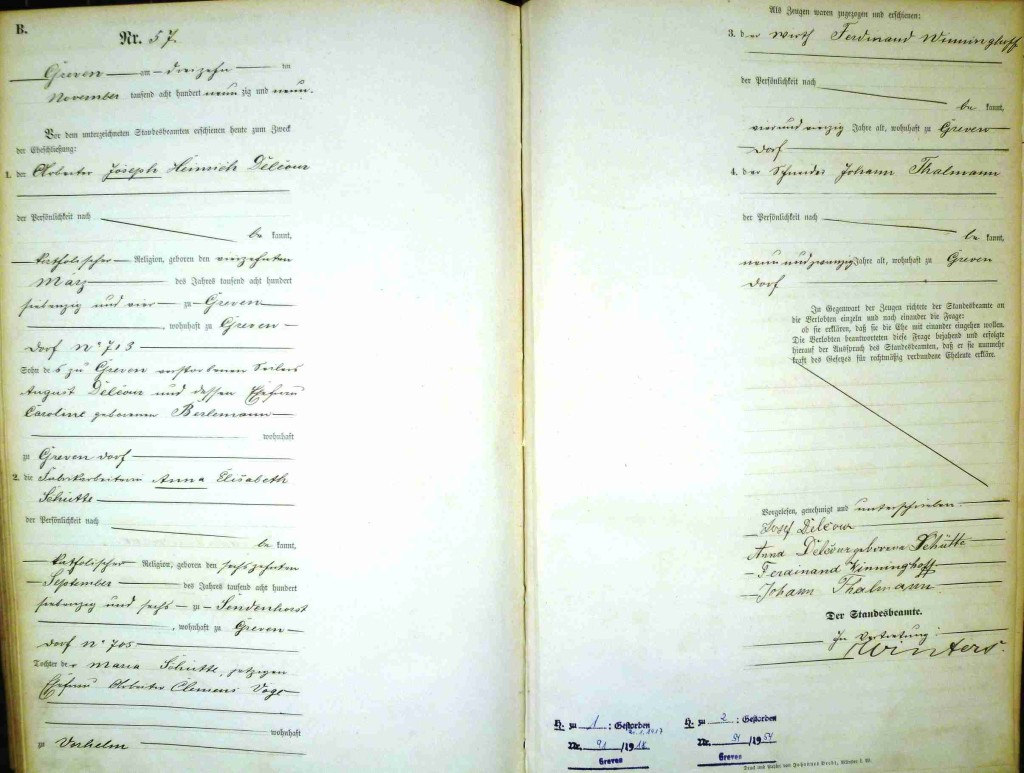 B.
Nr. 57.
Greven am dreizehn ten
November tausend acht hundert neun zig und neun.
Vor dem unterzeichneten Standesbeamten erschienen heute zum Zweck
der Eheschließung:
1. der Arbeiter Joseph Heinrich Deléour
der Persönlichkeit nach
be kannt,
katholischer Religion, geboren den vierzehnten
März des Jahres tausend acht hundert
siebenzig und vier zu Greven
, wohnhaft zu Greven
Dorf No 713
Sohn des zu Greven verstorbenen Seilers
August Deléour und dessen Ehefrau
Caroline geborenen Berlemann
wohnhaft
zu Greven Dorf
2. die Fabrikarbeiterin Anna Elisabeth
Schütte
der Persönlichkeit nach
be kannt,
katholischer Religion, geboren den sechszehnten
September des Jahres tausend acht hundert
siebenzig und sechs zu Sendenhorst
, wohnhaft zu Greven
Dorf No 705
Tochter der Maria Schütte, jetzigen
Ehefrau Arbeiter Clemens
wohnhaft
zu Vorhelm
Als Zeugen waren zugezogen und erschienen:
3. der Wirth Ferdinand Winninghoff
der Persönlichkeit nach
be kannt,
vier und vierzig Jahre alt, wohnhaft zu Greven
Dorf
4. der Johann Thalmann
der Persönlichkeit nach
be kannt,
neun und zwanzig Jahre alt, wohnhaft zu Greven
Dorf
In Gegenwart der Zeugen richtete der Standesbeamte an
die Verlobten einzeln und nach einander die Frage:
ob sie erklären, daß sie die Ehe mit einander eingehen wollen.
Die Verlobten beantworteten diese Frage bejahend und erfolgte
hierauf der Ausspruch des Standesbeamten, daß er sie nunmehr
kraft des Gesetzes für rechtmäßig verbundene Eheleute erkläre.
Vorgelesen, genehmigt und unterschrieben
Josef Deléour
Anna Deléour geborene Schütte
Ferdinand Winninghoff
Johann Thalmann
Der Standesbeamte.
In Vertretung:
Winters.
H. zu 1 : Gestorben
Nr. 91/1918
Greven
H. zu 2 : Gestorben
Nr. 54/1954
Greven